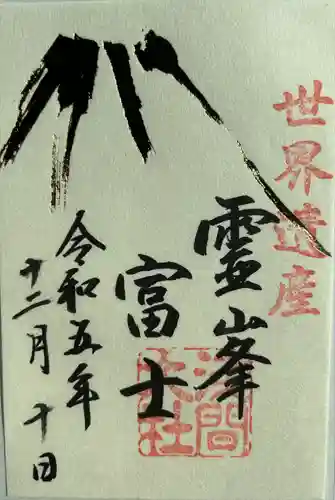 世界遺産
霊山峯
富士
浅間大社
令和五年
十二月十日